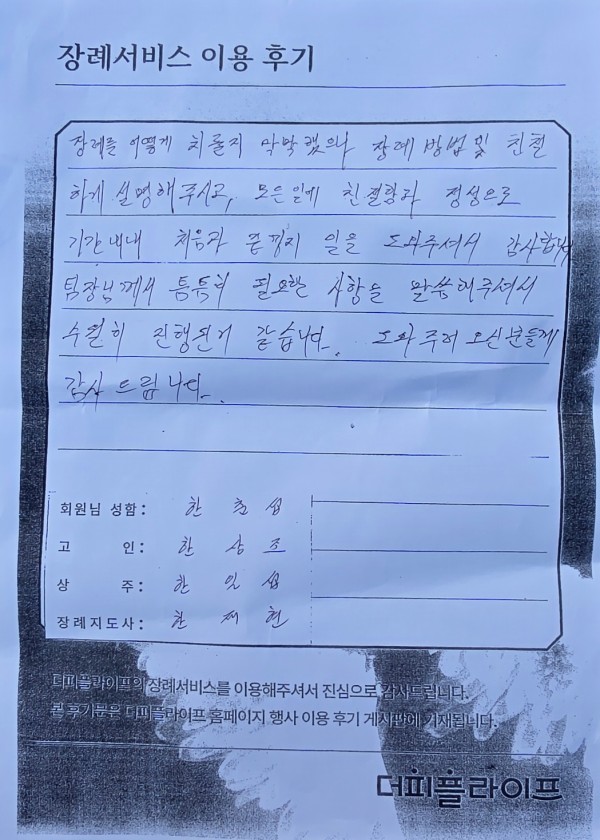 장례서비스 이용 후기
장례를 어떻게 치룰지 막막했으나 장례 방법 및 친절
하게 설명해 주시고, 모든일에 친절함과 정성으로
기간내내 처음과 끝까지 일을 도와주셔서 감사합니다
팀장님께서 틈틈히 필요한 사항을 말씀해주셔서
수월히 진행된거 같습니다. 도와 주러 오신분들께
감사 드립니다.
회원님 성함: 한 춘 섭
고 인: 한 상 조
상 주: 한 일 섭
장례지도사: 한 재 현
더피플라이프의 장례서비스를 이용해주셔서 진심으로 감사드립니다.
본 후기문은 더피플라이프 홈페이지 행사 이용 후기 게시판에 기재됩니다.
더피플라이프